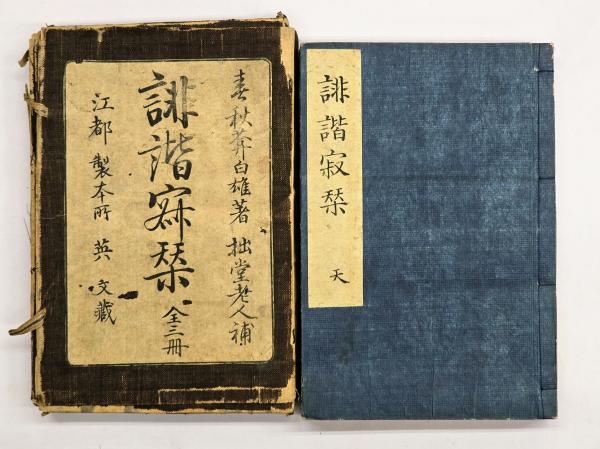 春秋菴白雄著 拙堂老人補
誹諧寂栞 全三冊
江都 製本所 英 文藏
誹諧寂栞
天